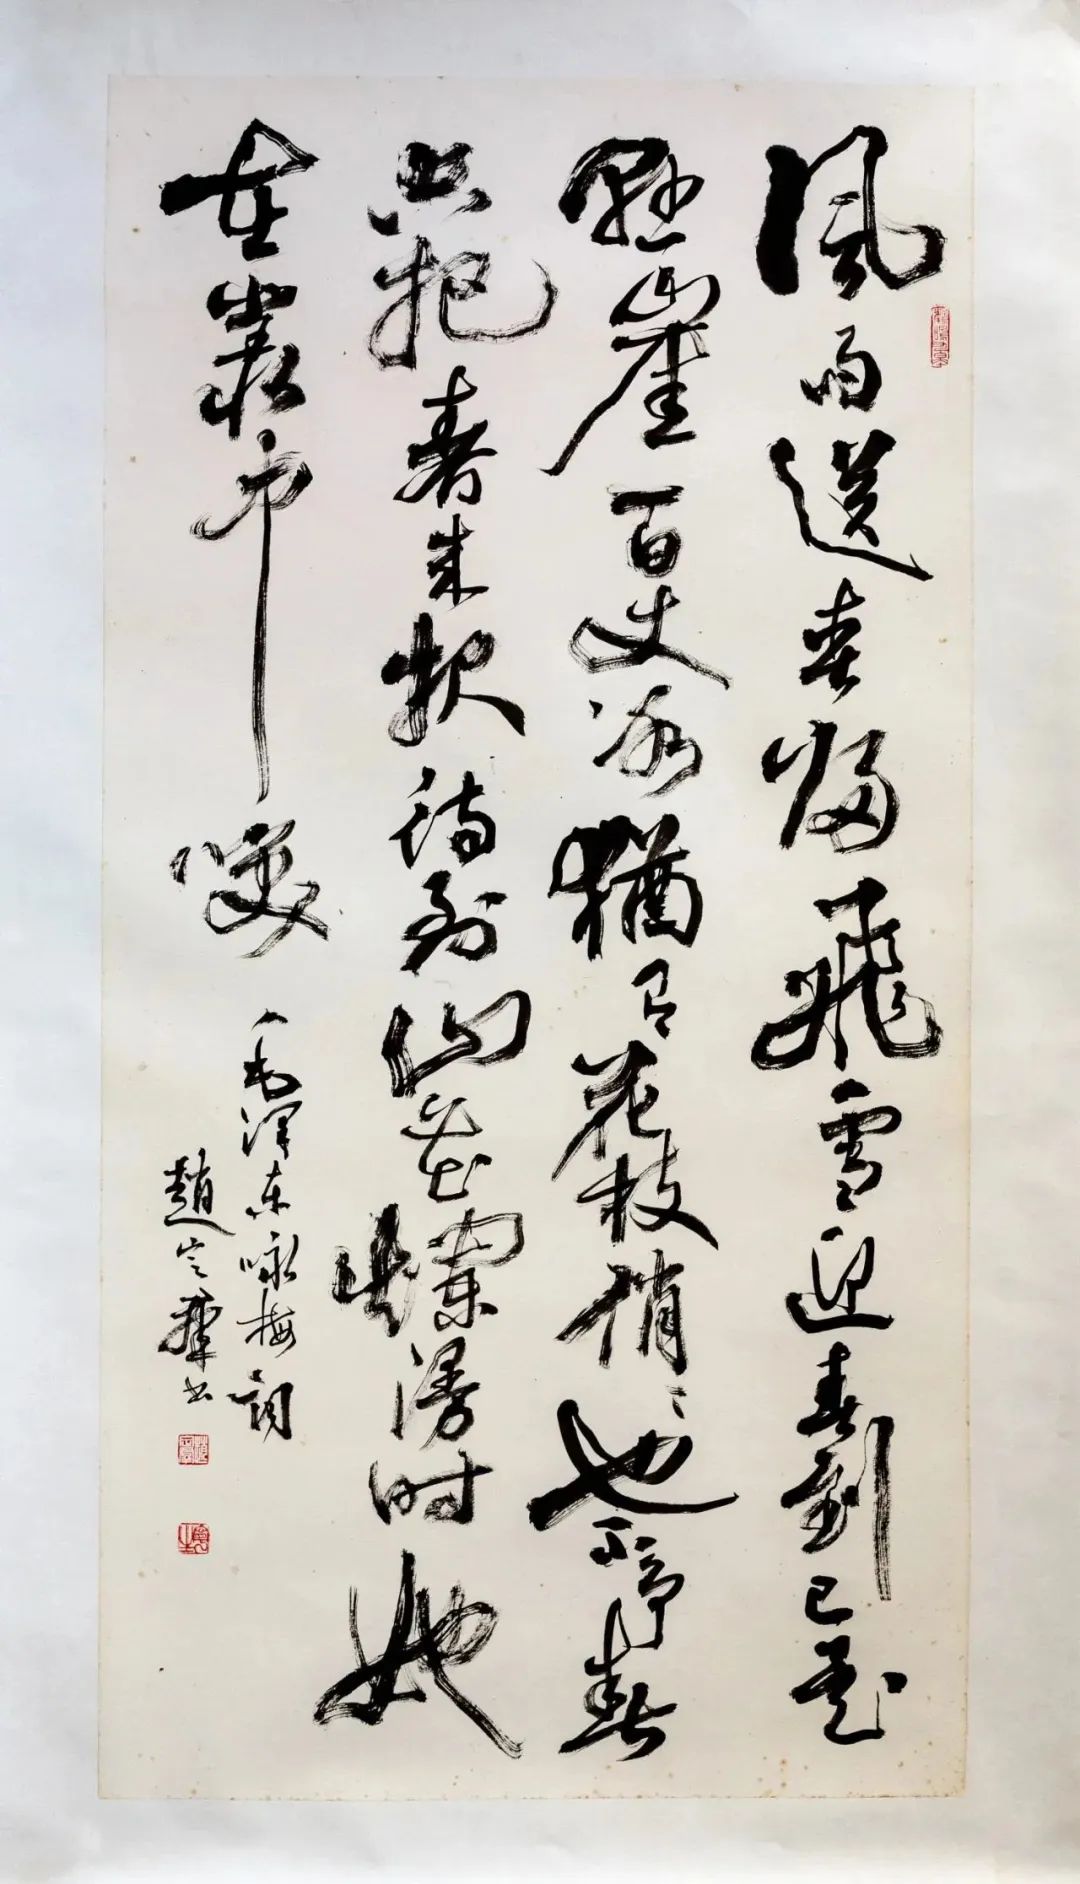 風雨送春歸飛雪迎春到已是
懸崖百丈冰猶有花枝俏〻也不爭春
只把春來報待到山花爛漫时她
在叢中笑
毛澤东咏梅詞
趙书